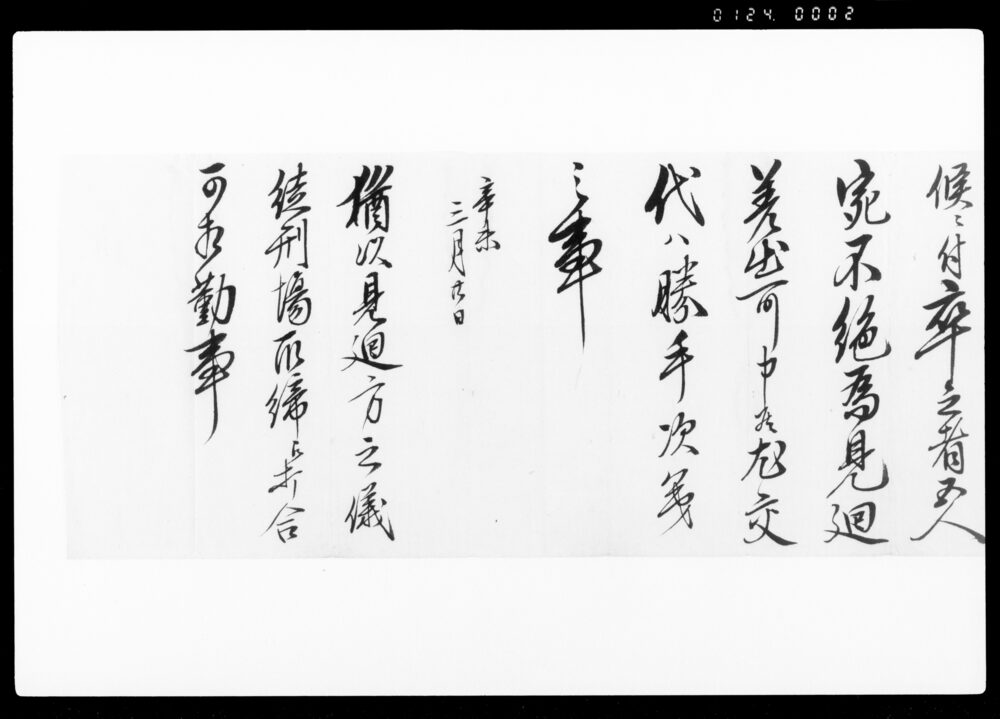 0124. 0002
候ニ付卒之者五人
宛不絶為見廻
差出可申尤交
代ハ勝手次第
之事
辛未
三月廿日
猶以見廻方之儀
徒刑場取締歩合
可相勤事